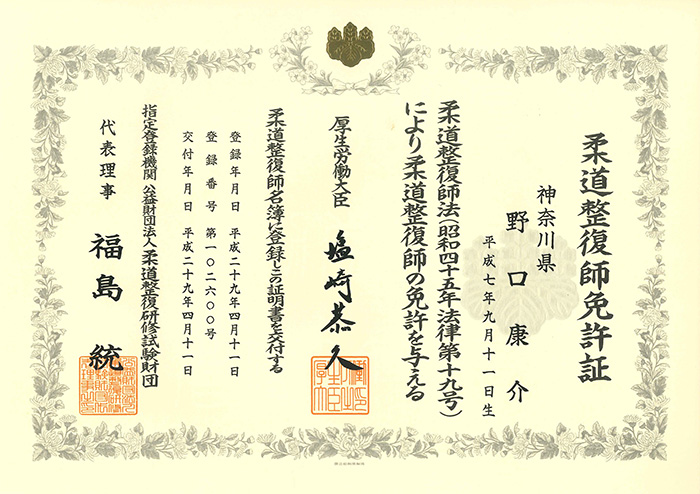 柔道整復師免許証
神奈川県
野口康介
平成七年九月十一日生
柔道整復師法(昭和四十五年法律第十九号)
により柔道整復師の免許を与える
厚生労働大臣 塩崎恭久
柔道整復師名簿に登録しこの証明書を交付する
登録年月日 平成二十九年四月十一日
登録番号 第一〇二六〇〇号
交付年月日 平成二十九年四月十一日
指定登録機関 公益財団法人 柔道整復研修試験財団
代表理事 福島統